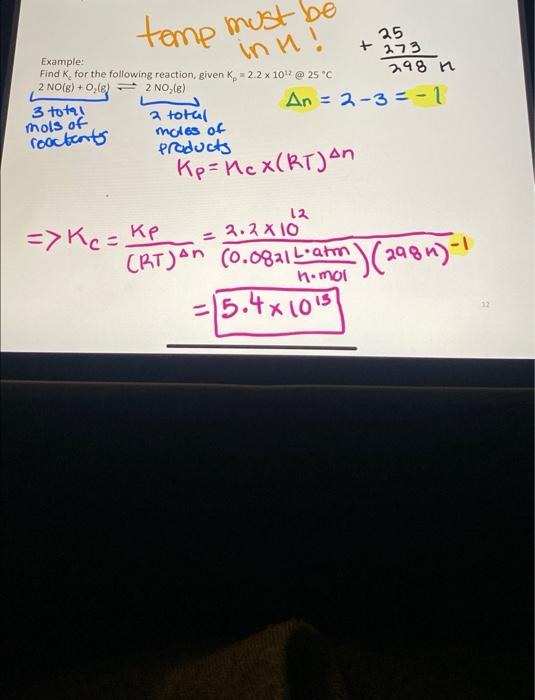 temp must be
in K!
25
+ 273
298 K
Example:
Find Kc for the following reaction, given Kp = 2.2 x 10¹² @ 25 °C
2 NO(g) + O₂(g) ⇌ 2 NO₂(g)
Δn = 2 - 3 = -1
3 total
mols of
reactants
2 total
moles of
products
Kp = Kc x (RT)^Δn
=> Kc = Kp / (RT)^Δn = 2.2 x 10¹² / (0.0821 L·atm / K·mol)(298 K)^-1
= 5.4 x 10¹³
12